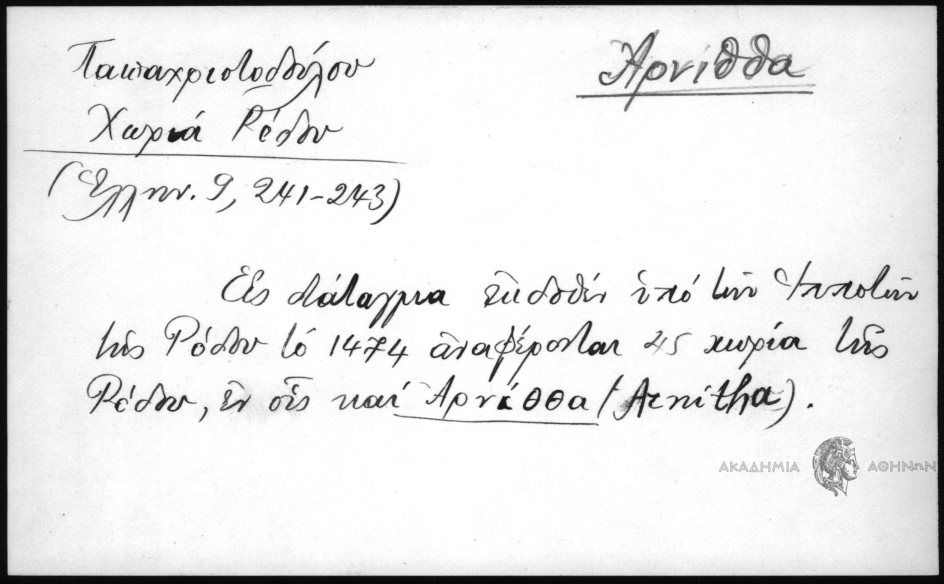 Ἀρνίθθα
Παπαχριστοδούλου
Χωριά Ρόδου
(Ἑλλην. 9, 241-243)
Εἰς διάταγμα ἐκδοθέν ὑπό τῶν Ἱπποτῶν
τῆς Ρόδου τό 1474 ἀναφέρονται 45 χωρία τῆς
Ρόδου, ἐν οἷς καί Ἀρνίθθα (Arnitha).
ΑΚΑΔΗΜΙΑ ΑΘΗΝΩΝ